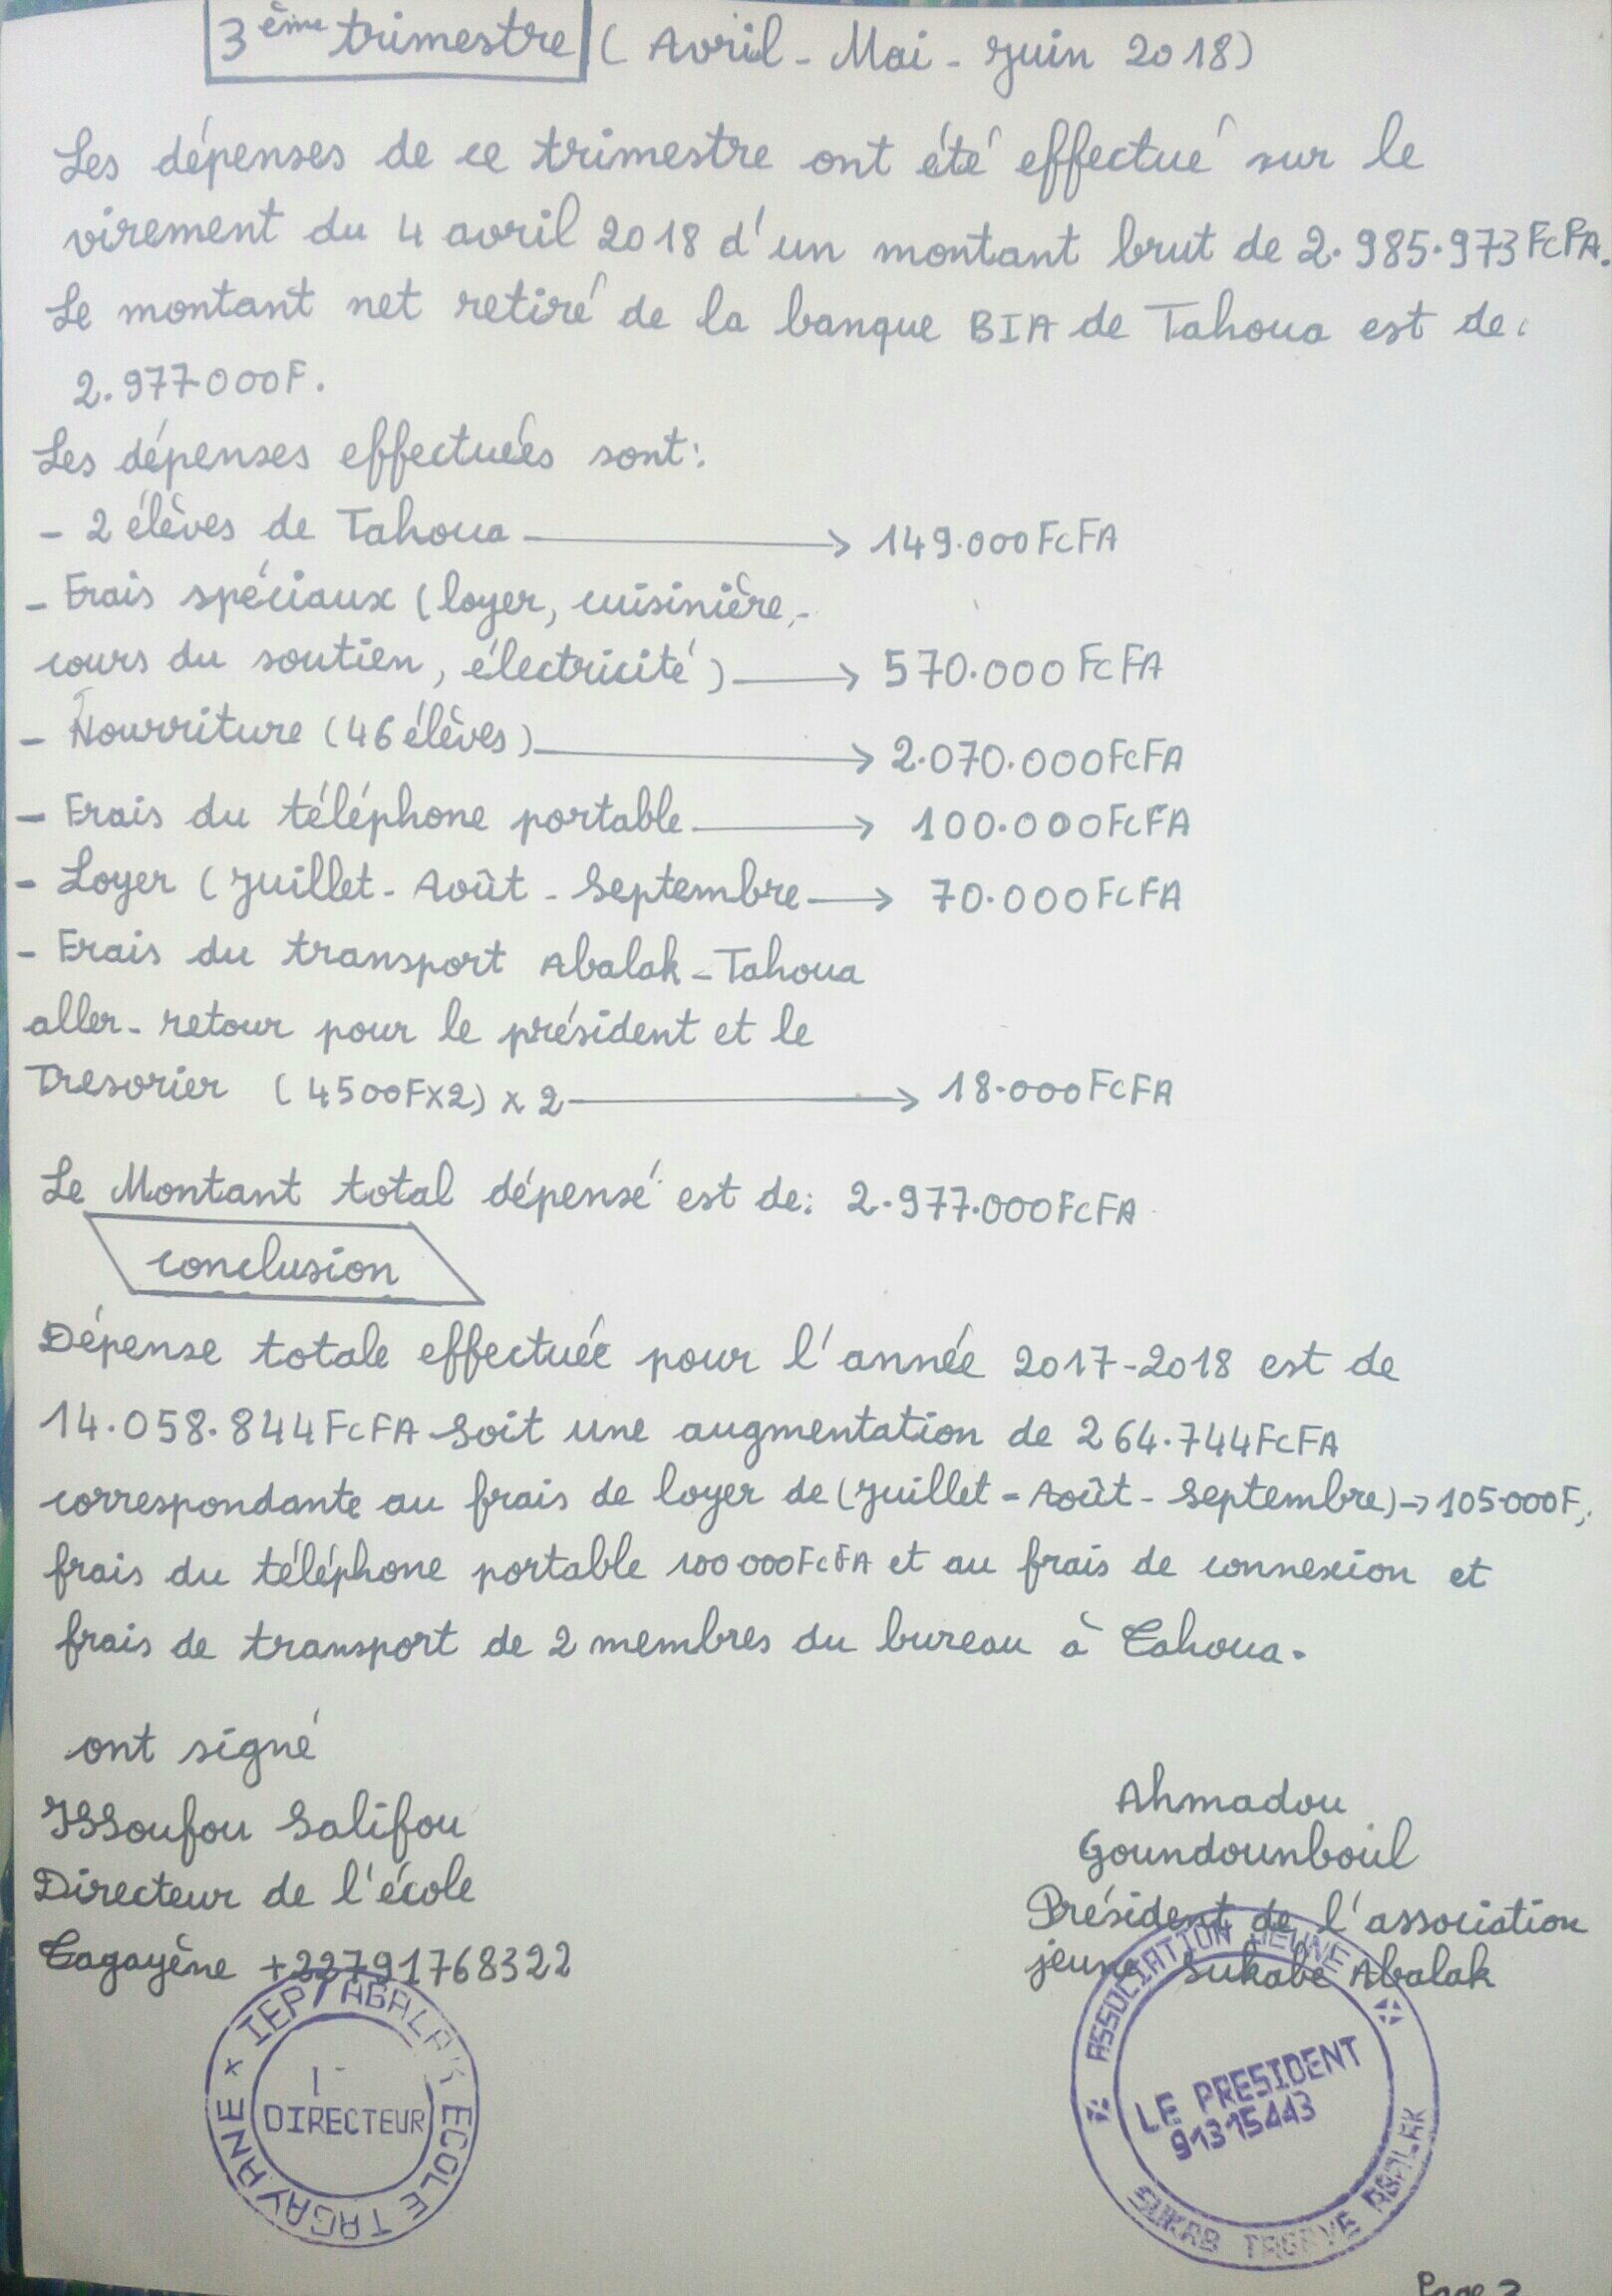 3ème trimestre ( Avril - Mai - Juin 2018)
Les dépenses de ce trimestre ont été effectué sur le
virement du 4 avril 2018 d'un montant brut de 2.985.973 FcFA.
Le montant net retiré de la banque BIA de Tahoua est de:
2.977000F.
Les dépenses effectuées sont:
- 2 élèves de Tahoua → 149.000 FcFA
- Frais spéciaux (loyer, cuisinière,-
cours du soutien, électricité) → 570.000 FcFA
- Nourriture (46 élèves) → 2.070.000FcFA
- Frais du téléphone portable → 100.000FcFA
- Loyer (Juillet - Août - Septembre → 70.000FcFA
- Frais du transport Abalak - Tahoua
aller-retour pour le président et le
Tresorier (4500Fx2) x 2 → 18.000FcFA
Le Montant total dépensé est de: 2.977.000FcFA
conclusion
Dépense totale effectuée pour l'année 2017-2018 est de
14.058.844 FcFA soit une augmentation de 264.744FcFA
correspondante au frais de loyer de (Juillet - Août - Septembre) → 105.000F,
frais du téléphone portable 100 000FcFA et au frais de connexion et
frais de transport de 2 membres du bureau à Tahoua.
ont signé
ISSoufou Salifou
Directeur de l'école
Tagayêne +22791768322
Ahmadou
Goundounboul
Président de l'association
jeune Sukabe Abalak
IEP/ABALAK ECOLE TAGAYANE
DIRECTEUR
ASSOCIATION JEUNE
LE PRESIDENT
91315443
SUKAB TAGAYE ABALAK